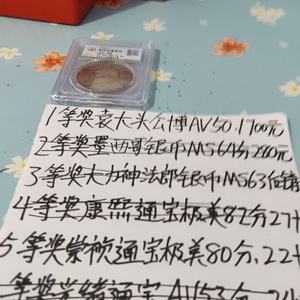 1等奖袁大头公博AV50.1700元
2等奖墨西哥银币MS64分280元
3等奖大力神法郎银币MS63
4等奖康熙通宝极美82分27
5等奖崇祯通宝极美80分.22
等奖光绪通宝AV53分